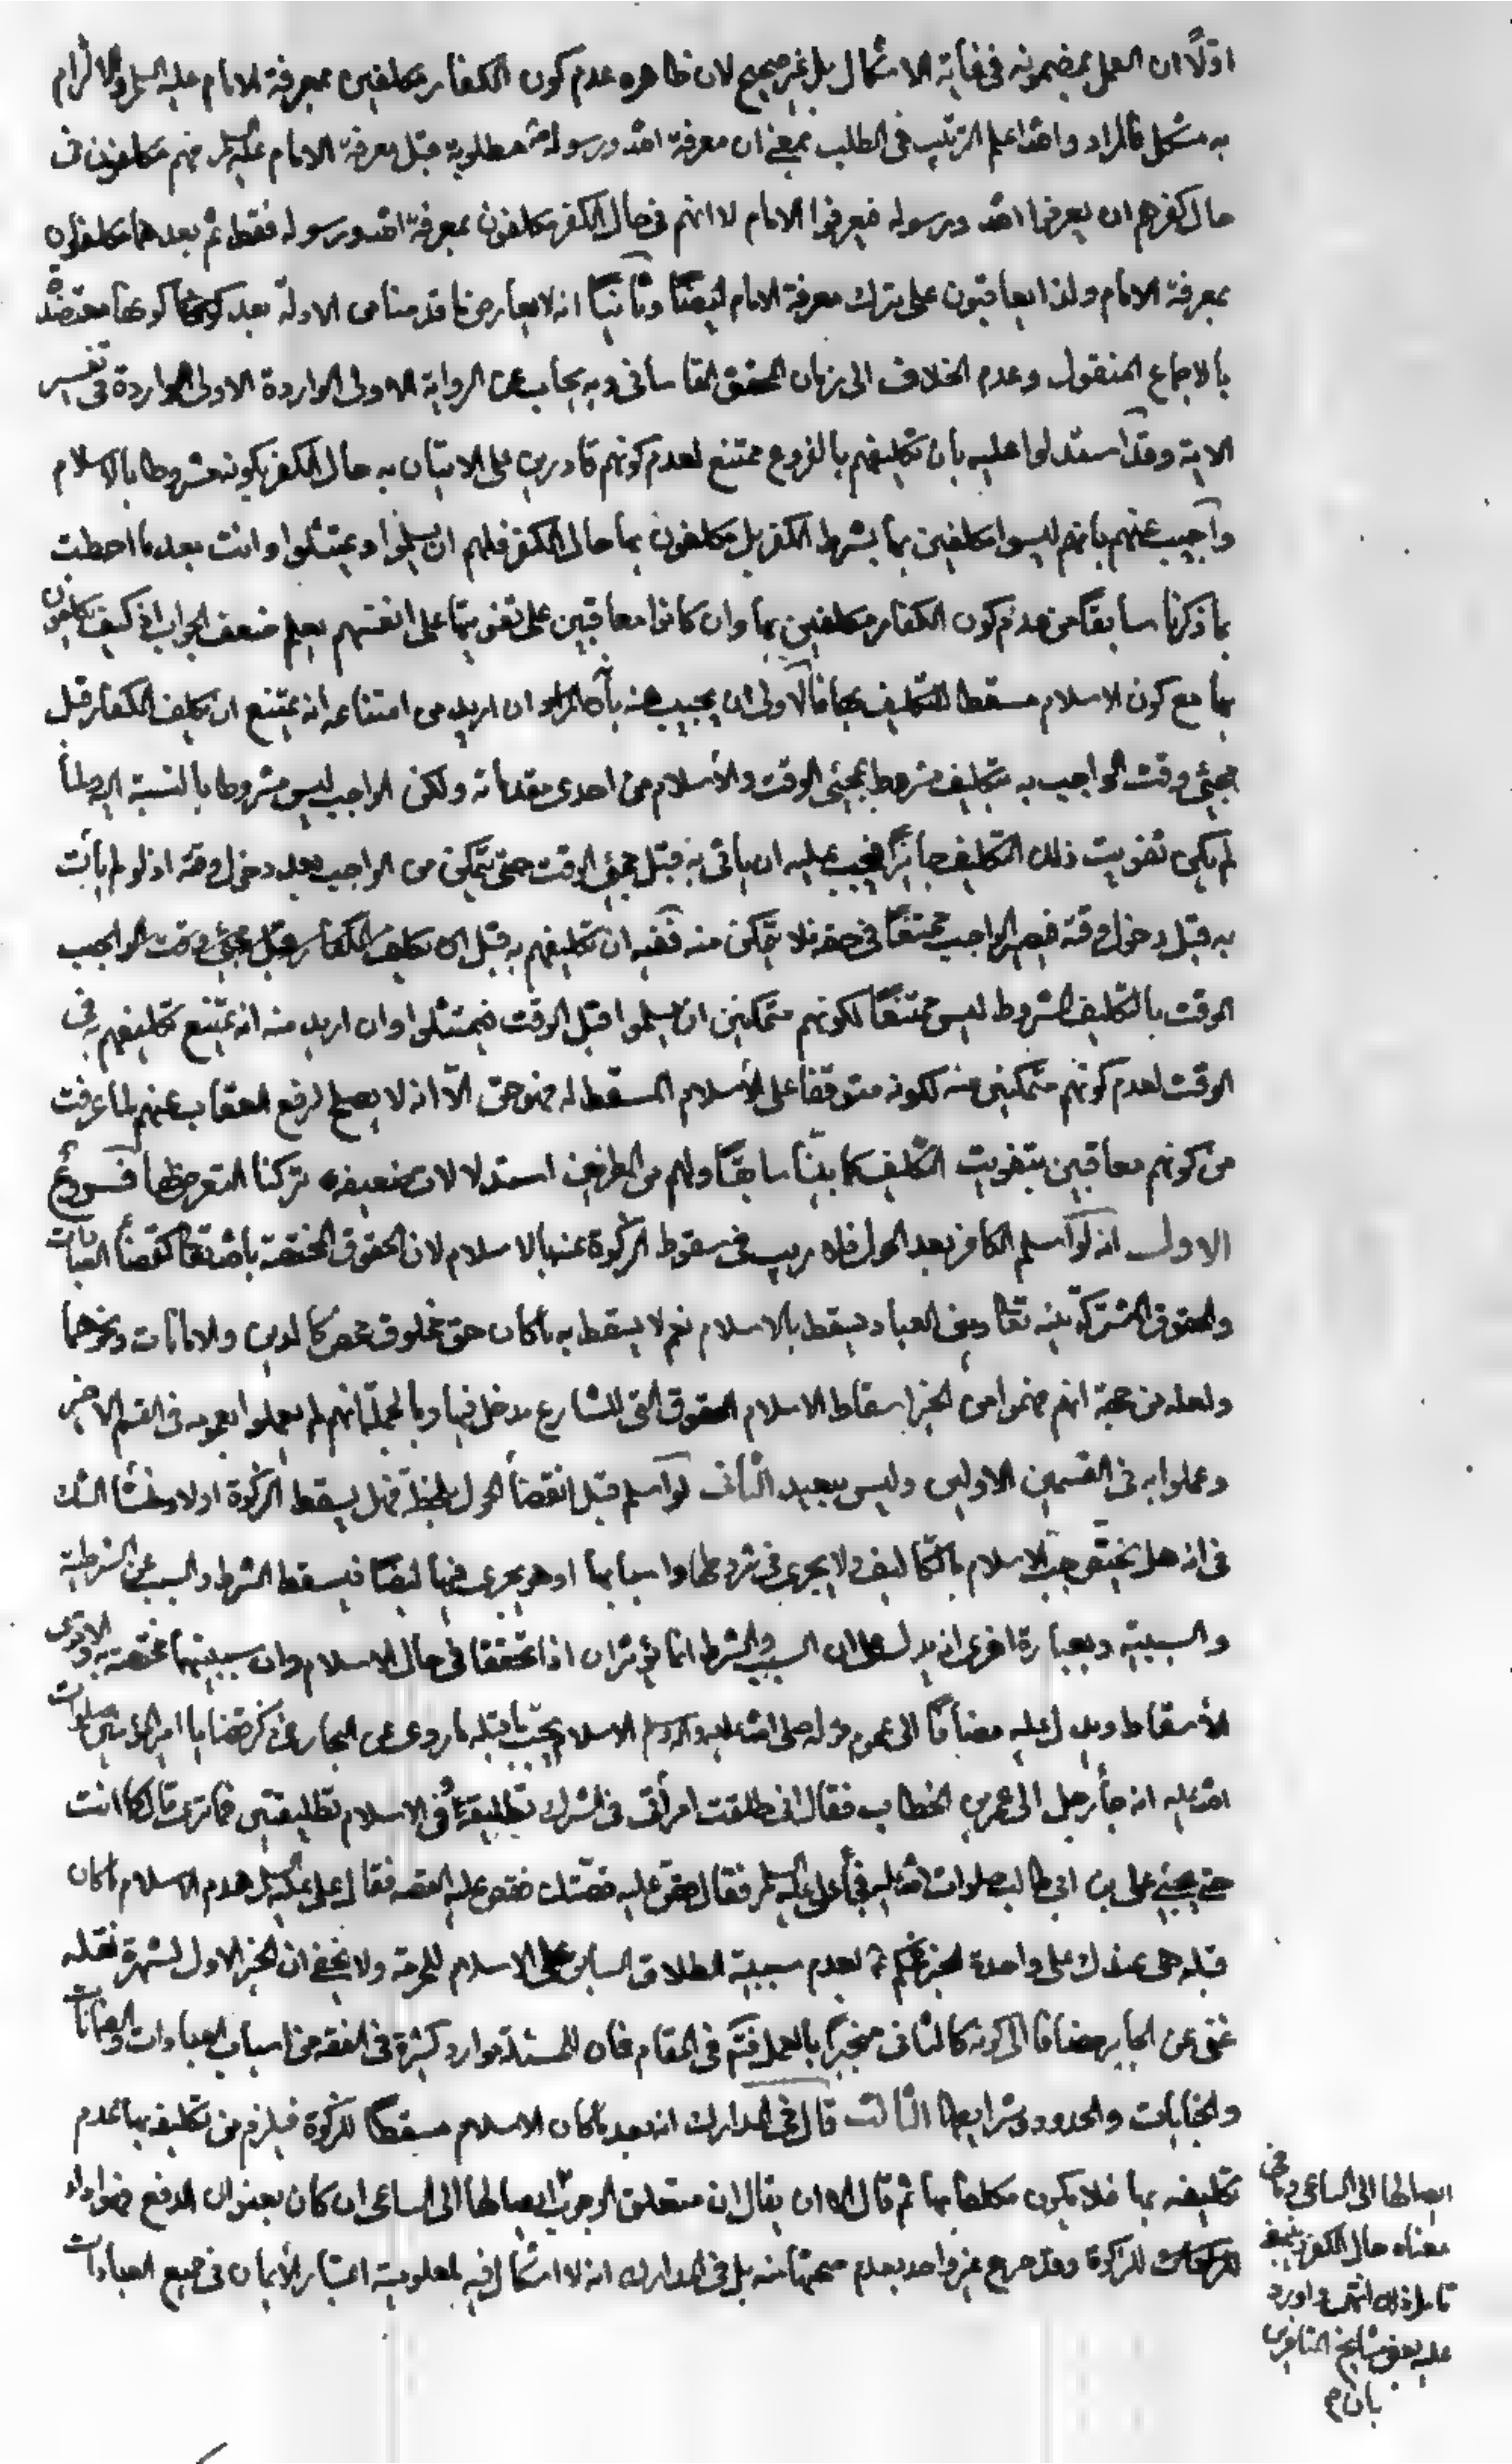 اولاً ان العمل بمضمونه فى غاية الاشكال بل غير صحيح لان ظاهره عدم كون الكفار مكلفين بمعرفة الامام عليه السلم والالزام
به مشكل فالمراد والله اعلم الترتيب فى الطلب بمعنى ان معرفة الله ورسوله مطلوبة قبل معرفة الامام عليه السلم فهم مكلفون فى
حال كفرهم ان يعرفوا الله ورسوله فيعرفوا الامام لا انهم فى حال الكفر مكلفون بمعرفة الله ورسوله فقط ثم بعدهما مكلفون
بمعرفة الامام ولذا يعاقبون على ترك معرفة الامام ايضًا وثانيًا انه لا يعارض ما قدمنا من الادلة بعد كونها معتضدة
بالاجماع المنقول وعدم الخلاف الى زمان المحقق القاسانى وبه يجاب عن الرواية الاولى الواردة فى تفسير
الاية وقد استدلوا عليه بان تكليفهم بالفروع ممتنع لعدم كونهم قادرين على الاتيان به حال الكفر لكونه مشروطا بالاسلام
واجيب عنهم بانهم ليسوا مكلفين بها بشرط الكفر بل مكلفون بها حال الكفر فلهم ان يسلموا ويمتثلوا وانت بعد ما احطت
بما ذكرنا سابقًا من عدم كون الكفار مكلفين بها وان كانوا معاقبين على تفويتها على انفسهم يعلم ضعف الجواب اذ كيف يكلفون
بها مع كون الاسلام مسقطا للتكليف بها فالاولى ان يجيب عنه بان المراد ان اريد من امتناعه انه يمتنع ان يكلف الكفار قبل
مجئ وقت الواجب به بتكليف مشروط بمجئ الوقت والاسلام من احدى مقدماته ولكن الواجب ليس مشروطا بالنسبة اليه فلما
لم يكن تفويت ذلك التكليف جايزًا فيجب عليه ان ياتى به قبل مجئ الوقت حتى يتمكن من الواجب بعد دخول وقته اذ لو لم يأت
به قبل دخول وقته فيصير الواجب ممتنعًا فى حقه فلا يتمكن منه ففيه ان تكليفهم به قبل مجئ وقت الواجب
الوقت بالتكليف المشروط ليس ممتنعًا لكونهم متمكنين ان يسلموا قبل الوقت فيمتثلوا وان اريد منه انه يمتنع تكليفهم به فى
الوقت لعدم كونهم متمكنين منه لكونه متوقفًا على الاسلام المسقط له فهو حق الّا انه لا يصلح لرفع العقاب عنهم لما عرفت
من كونهم معاقبين بتفويت التكليف كما بيّنا سابقًا ولهم من الطرفين استدلالات ضعيفه تركنا التعرض لها فروع
الاول انه لو اسلم الكافر بعد الحول فلا ريب فى سقوط الزكوة عنه بالاسلام لان الحقوق المختصة بالله تعا كقضاء العبادات
والحقوق المشتركة بينه تعا وبين العباد يسقط بالاسلام نعم لا يسقط به ما كان حق مخلوق محض كالدين والامانات ونحوهما
ولعله من جهة انهم فهموا من الخبر اسقاط الاسلام الحقوق التى للشارع مدخل فيها وبالجملة انهم لم يعملوا بعمومه فى القسم الاخير
وعملوا به فى القسمين الاولين وليس ببعيد الثانى لو اسلم قبل انقضاء الحول بلحظة فهل يسقط الزكوة اولا ومنشأ الشك
فى انه هل يختص جبّ الاسلام بالتكاليف ولا يجرى فى شروطها واسبابها او هو يجرى فيها ايضًا فيسقط الشرط والسبب عن الشرطية
والسببية وبعبارة اخرى انه يدل على ان السبب والشرط انما يؤثران اذا تحققا فى حال الاسلام وان سببيتهما مختصة به والاقوى
الاسقاط ويدل عليه مضافًا الى عموم قوله صلى الله عليه واله وسلم الاسلام يجبّ ما قبله ما روى عن البحار فى ذكر قضايا امير المؤمنين صلوات
الله عليه انه جاء رجل الى عمر بن الخطاب فقال انى طلقت امرأتى فى الشرك تطليقة وفى الاسلام تطليقتين فما ترى قال كما انت
حتى يجئ على بن ابى طالب صلوات الله عليه فجاء على عليه السلم فقال قص عليه قصّتك فقص عليه القصه فقال على عليه السلم هدم الاسلام ما كان
قبله هى عندك على واحدة الخبر فحكم بعدم سببية الطلاق السابق على الاسلام للحرمة ولا يخفى ان الخبر الاول لشهرة نقله
غنى عن الجابر مضافا الى كونه كالثانى منجبرًا بالعمل فتم فى المقام فان للمسئلة موارد كثيرة فى الفقه من اسباب العبادات والضمانات
والجنايات والحدود وشرايطها الثالث قال فى المدارك انه بعد ما كان الاسلام مسقطًا للزكوة فيلزم من تكليفه بها عدم
تكليفه بها فلا يكون مكلفا بها ثم قال الا ان يقال ان متعلق الوجوب ايصالها الى الساعى ان كان بعنوان الدفع فهو اداء
للزكوة وقد صرح غير واحد بعدم صحتها منه بل فى المدارك انه لا اشكال فيه لمعلومية اعتبار الايمان فى جميع العبادات
ايصالها الى الساعى وما فى
معناه حال الكفر ينبغى
تامل ذلك انتهى واورد
عليه بعض مشايخ المتاخرين
بان م